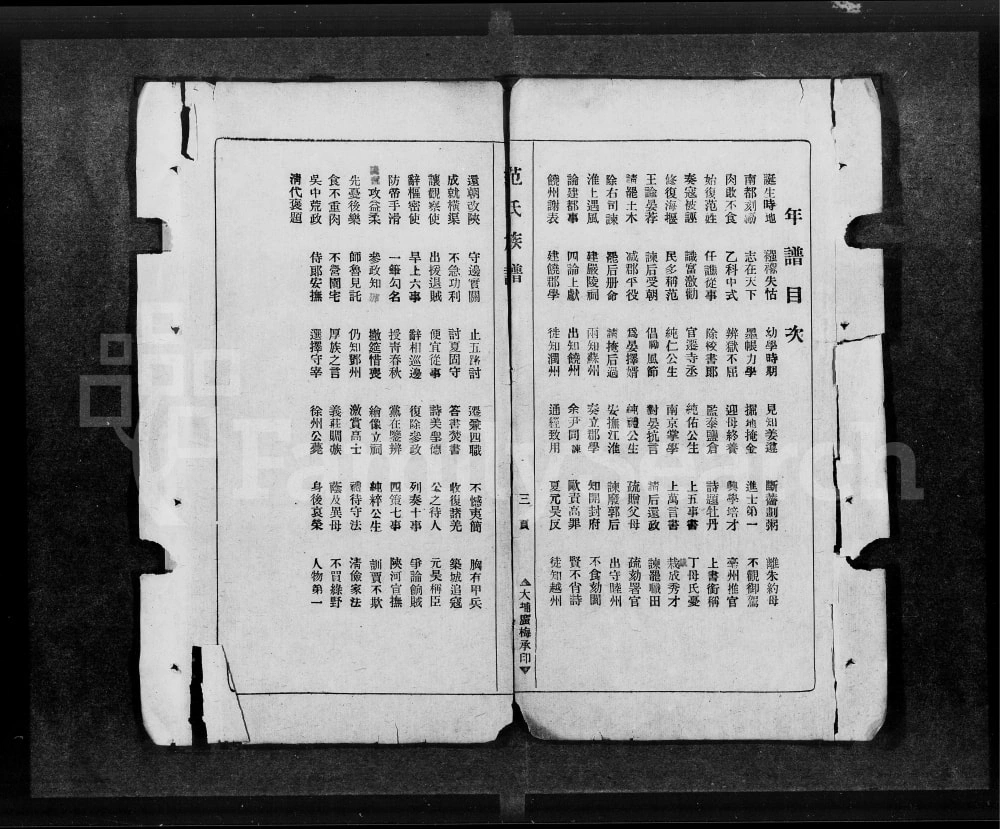 年譜目次
誕生時地 襁褓失怙 幼學時期 見知姜遵 斷虀劃粥 離朱約母
南都刻勵 志在天下 墨帳力學 掘地掩金 進士第一 不觀御駕
肉敢不食 乙科中式 辨獄不屈 迎母終養 興學培才 亳州推官
始復范姓 任譙從事 除校書郎 監泰鹽倉 詩題牡丹 上書銜稱
奏寇被誣 識富激勸 官遷寺丞 純佑公生 上五事書 丁母氏憂
修復海堰 民多稱范 純仁公生 南京掌學 上萬言書 栽成秀才
王論晏荐 諫后受朝 倡風節 對晏抗言 請后還政 諫罷職田
請罷土木 減郡平役 爲晏擇婿 純禮公生 疏贈父母 疏劾署官
除右司諫 罷后册命 請掩后過 安撫江淮 諫廢郭后 出守睦州
淮上遇風 建嚴陵祠 兩知蘇州 奏立郡學 知開封府 不食劾閻
論建都事 四論上獻 出知饒州 余尹同諫 歐責高罪 賢不肖詩
饒州謝表 建饒郡學 徙知潤州 通經致用 夏元昊反 徙知越州
范氏族譜 三頁 大埔廣梅承印
還朝改陝 守邊實關 止五路討 遷兼四職 不憾夷簡 胸有甲兵
成就橫渠 不急功利 討夏固守 答書焚書 收復諸羌 築城追寇
讓觀察使 出援退賊 便宜從事 詩美聖德 公之待人 元昊稱臣
辭樞密使 早上六事 辭相巡邊 復除參政 列奏十事 爭論餉賊
防帝手滑 一筆勾名 授靑春秋 黨在鑒辨 四策七事 陝河宣撫
攻益柔 參政知 撤筵惜喪 繪像立祠 純粹公生 訓賈不欺
先憂後樂 師魯見託 仍知鄧州 激賞高士 禮待守法 淸儉家法
食不重肉 不營園宅 厚族之言 義莊賙族 蔭及異母 不買綠野
吳中荒政 侍郞安撫 選擇守宰 徐州公薨 身後哀榮 人物第一
淸代褒題
FamilySearch